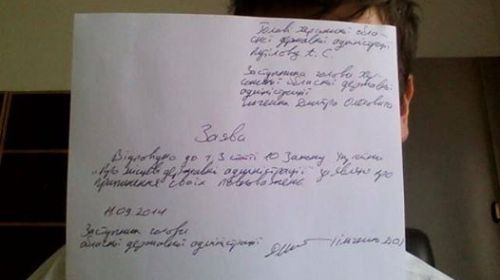 Голові Херсонської обла-
сної державної адміністрації
Путілову А. С.
Заступника голови Хер-
сонської обласної державної
адміністрації
Дмитра Олеговича
Заява
Відповідно до ч. 3 статті 10 Закону України
„Про місцеві державні адміністрації" заявляю про
припинення своїх повноважень
11.09.2014
Заступник голови
обласної державної адміністрації